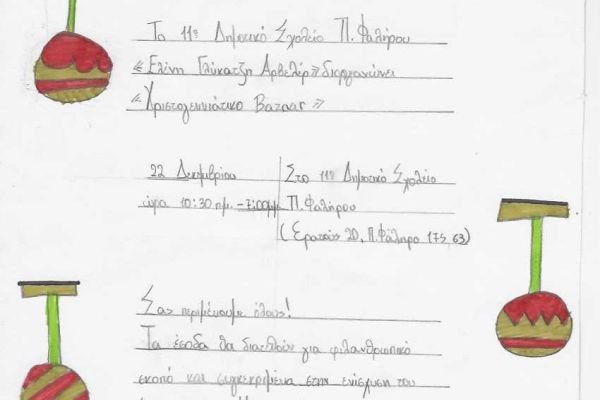 Το 11ο Δημοτικό Σχολείο Π. Φαλήρου
«Ελένη Γλύκατζη Αρβελέρ» διοργανώνει
«Χριστογεννιάτικο Bazaar»
22 Δεκεμβρίου
ώρα 10:30 πμ. - 7:00μμ
Στο 11ο Δημοτικό Σχολείο
Π. Φαλήρου
(Ερατούς 20, Π. Φάληρο 175 63)
Σας περιμένουμε όλους!
Τα έσοδα θα διατεθούν για φιλανθρωπικό
σκοπό και συγκεκριμένα στην ενίσχυση του